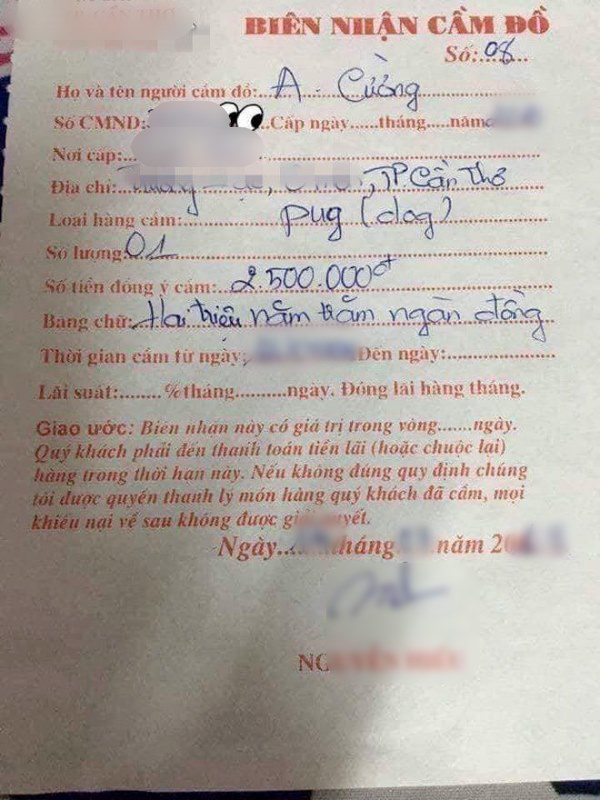 BIÊN NHẬN CẦM ĐỒ
Số: 08
Họ và tên người cầm đồ: A. Cường
Số CMND: Cấp ngày......tháng......năm
Nơi cấp:
Địa chỉ: TP Cần Thơ
Loại hàng cầm: pug (dog)
Số lượng: 01
Số tiền đồng ý cầm: 2.500.000đ
Bằng chữ: Hai triệu năm trăm ngàn đồng
Thời gian cầm từ ngày: Đến ngày:
Lãi suất:.......%tháng.........ngày. Đóng lãi hàng tháng.
Giao ước: Biên nhận này có giá trị trong vòng.......ngày.
Quý khách phải đến thanh toán tiền lãi (hoặc chuộc lại)
hàng trong thời hạn này. Nếu không đúng quy định chúng
tôi được quyền thanh lý món hàng quý khách đã cầm, mọi
khiếu nại về sau không được giải quyết.
Ngày tháng năm 2